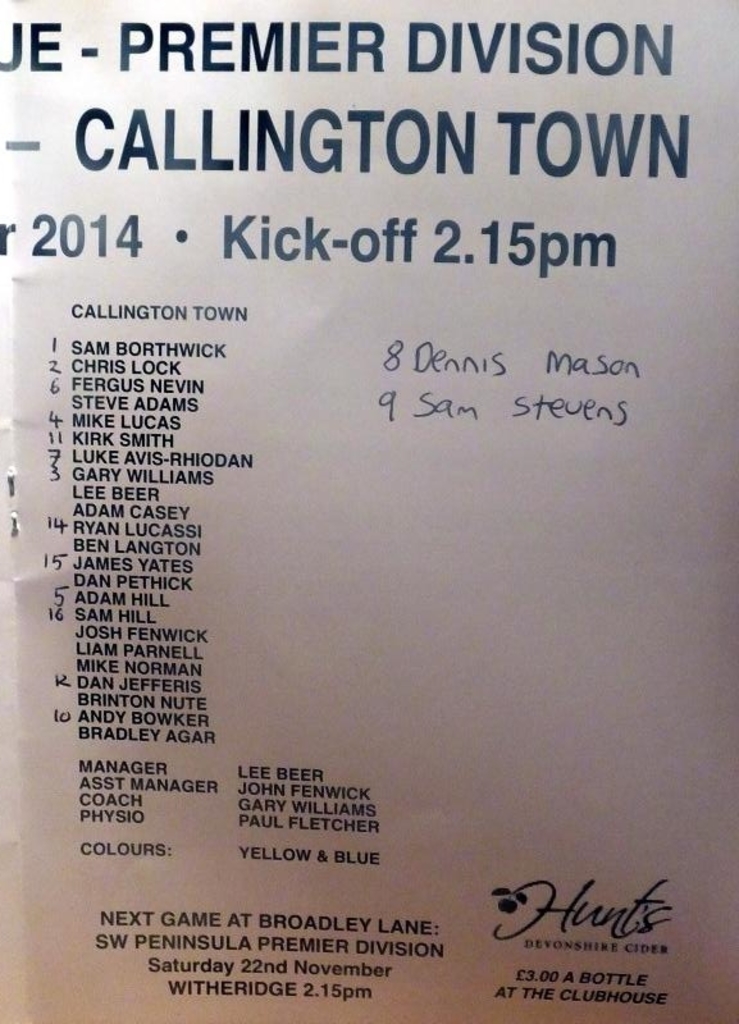 UE - PREMIER DIVISION
– CALLINGTON TOWN
r 2014 • Kick-off 2.15pm
CALLINGTON TOWN
1 SAM BORTHWICK
2 CHRIS LOCK
6 FERGUS NEVIN
STEVE ADAMS
4 MIKE LUCAS
11 KIRK SMITH
7 LUKE AVIS-RHIODAN
3 GARY WILLIAMS
LEE BEER
ADAM CASEY
14 RYAN LUCASSI
BEN LANGTON
15 JAMES YATES
DAN PETHICK
5 ADAM HILL
16 SAM HILL
JOSH FENWICK
LIAM PARNELL
MIKE NORMAN
12 DAN JEFFERIS
BRINTON NUTE
10 ANDY BOWKER
BRADLEY AGAR
8 Dennis Mason
9 Sam Stevens
MANAGER LEE BEER
ASST MANAGER JOHN FENWICK
COACH GARY WILLIAMS
PHYSIO PAUL FLETCHER
COLOURS: YELLOW & BLUE
NEXT GAME AT BROADLEY LANE:
SW PENINSULA PREMIER DIVISION
Saturday 22nd November
WITHERIDGE 2.15pm
Hunt's
DEVONSHIRE CIDER
£3.00 A BOTTLE
AT THE CLUBHOUSE